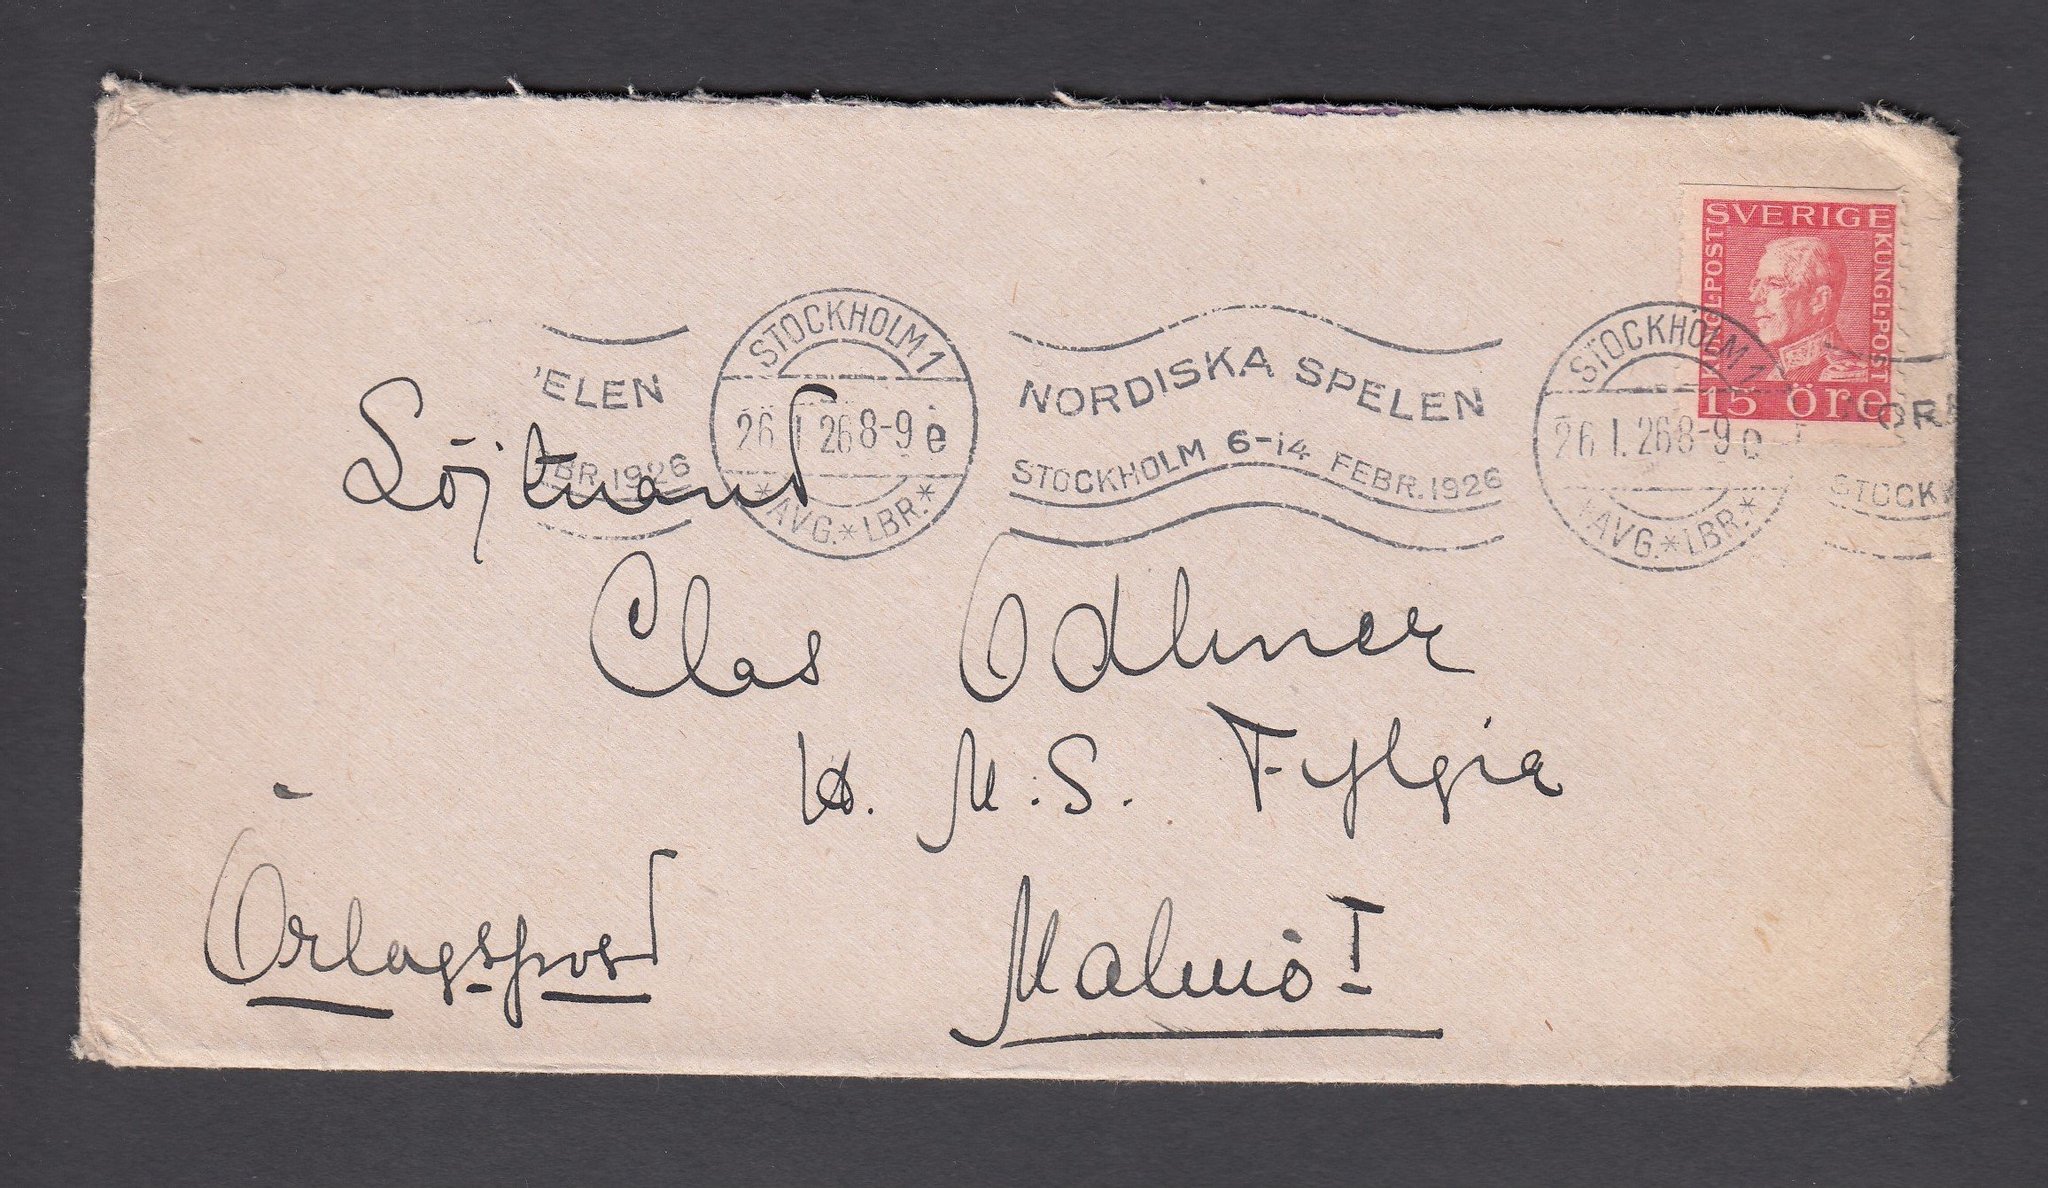 SVERIGE
KGLPOST
KUNGLPOST
15 öre
ELEN
BR. 1926
STOCKHOLM 1
26 1 26 8-9 e
*AVG.*LBR.*
NORDISKA SPELEN
STOCKHOLM 6-14 FEBR. 1926
STOCKHOLM 1
26 1. 26 8-9 e
*AVG.*LBR.*
NORD
STOCK
Löjtnant
Clas Odhner
H. M. S. Fylgia
Örlogspost
Malmö I